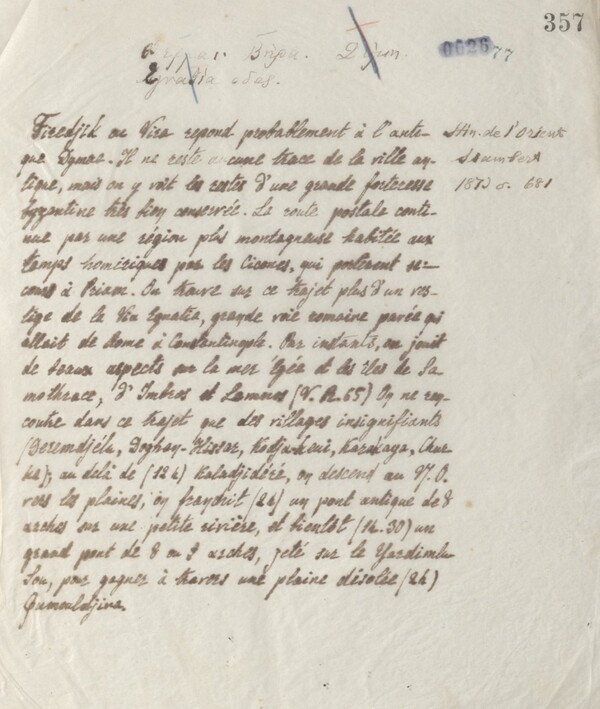 357
0626 77
Βήρα.
Εγνατία οδος.
Firedjik ou Vira repond probablement à l'anti-
que Dymae. Il ne reste aucune trace de la ville an-
tique, mais on y voit les restes d'une grande forteresse
byzantine très bien conservée. La route postale conti-
nue par une région plus montagneuse habitée aux
temps homériques par les Cicones, qui portèrent se-
cours à Priam. On trouve sur ce trajet plus d'un ves-
tige de la Via Egnatia, grande voie romaine pavée qui
allait de Rome à Constantinople. Par instants, on jouit
de beaux aspects sur la mer Egée et les îles de Sa-
mothrace, d'Imbros et Lemnos (V. R. 65) On ne ren-
contre dans ce trajet que des villages insignifiants
(Deremdjélu, Doghan-Hissar, Kodjakeui, Karakaya,
); au delà de (12 h) Kaladjidéré, on descend au N.O.
vers les plaines, on franchit (2 h) un pont antique de 8
arches sur une petite rivière, et bientôt (1 h. 30) un
grand pont de 8 ou 9 arches, jeté sur le Yardimlu
Sou, pour gagner à travers une plaine désolée (2 h)
Gumouldjina.
Itin. de l'Orient
Isambert
1873 σ. 681